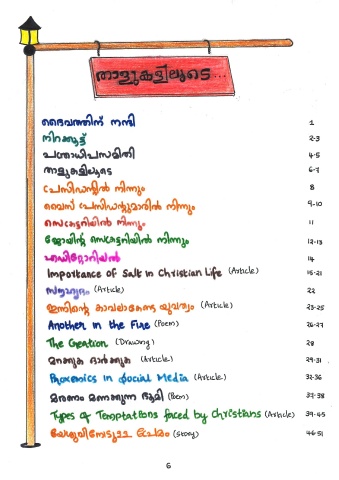 താളുകളിലൂടെ...
ദൈവത്തിന് നന്ദി 1
നിറക്കൂട്ട് 2-3
പത്രാധിപസമിതി 4-5
താളുകളിലൂടെ 6-7
പ്രസിഡന്റിൽ നിന്നും 8
വൈസ് പ്രസിഡന്റുമാരിൽ നിന്നും 9-10
സെക്രട്ടറിയിൽ നിന്നും 11
ജോയിന്റ് സെക്രട്ടറിയിൽ നിന്നും 12-13
എഡിറ്റോറിയൽ 14
Importance of Salt in Christian Life (Article) 15-21
സൗഹൃദം (Article) 22
ഇന്നിന്റെ കാവലാകേണ്ട യുവത്വം (Article) 23-25
Another in the Fire (Poem) 26-27
The Creation (Drawing) 28
മറക്കുക ഓർക്കുക (Article) 29-31
Proxemics in Social Media (Article) 32-36
മരണം മണക്കുന്ന ഭൂമി (Poem) 37-38
Types of Temptations faced by Christians (Article) 39-45
യേശുവിനോടുള്ള പ്രേമം (Story) 46-51
6